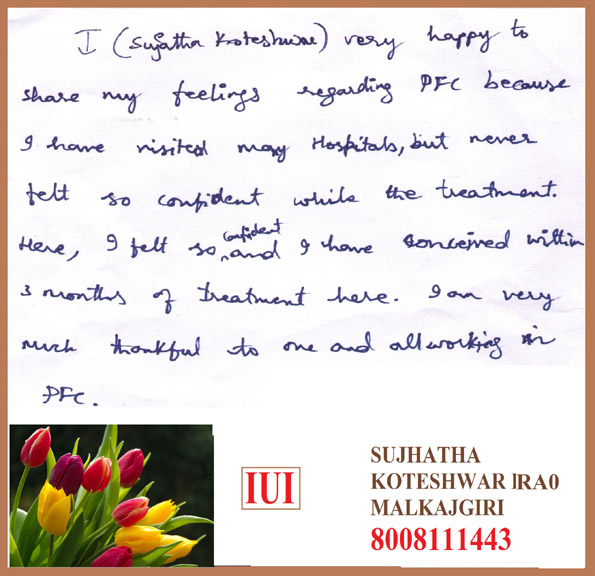 I (Sujatha Koteshwar) very happy to
share my feelings regarding PFC because
I have visited many Hospitals, but never
felt so confident while the treatment.
Here, I felt so confident and I have conceived within
3 months of treatment here. I am very
much thankful to one and all working in
PFC.
IUI
SUJHATHA
KOTESHWAR IRA0
MALKAJGIRI
8008111443